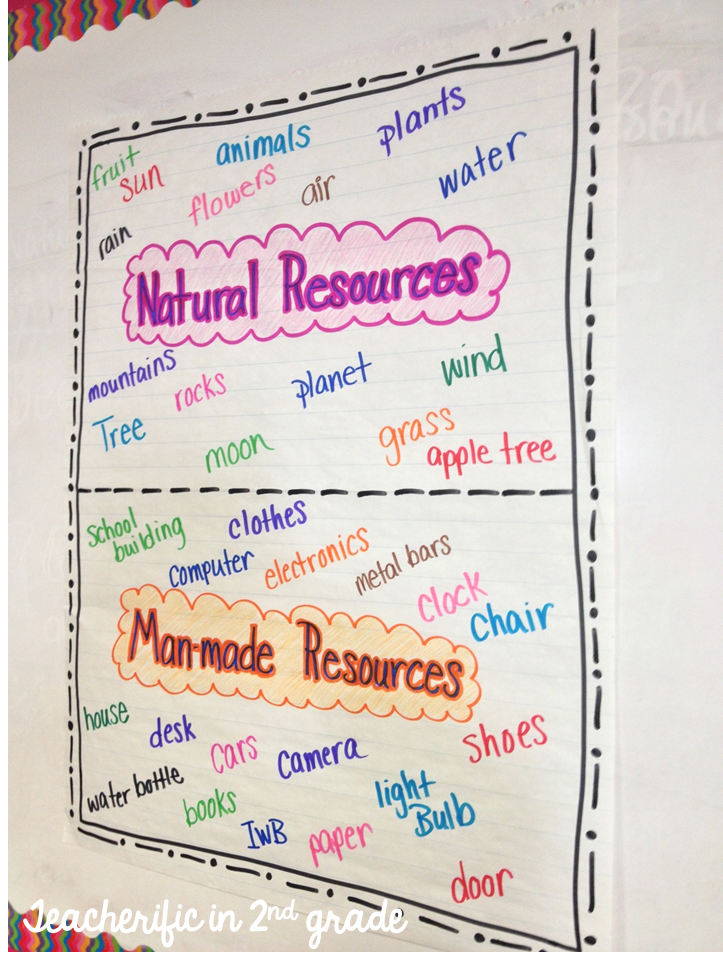 animals
plants
fruit
sun
flowers
air
water
rain
Natural Resources
mountains
rocks
planet
wind
Tree
moon
grass
apple tree
school
building
clothes
computer
electronics
metal bars
clock
chair
Man-made Resources
house
desk
cars
camera
shoes
water bottle
books
IWB
paper
light
Bulb
door
Teacherific in 2nd grade